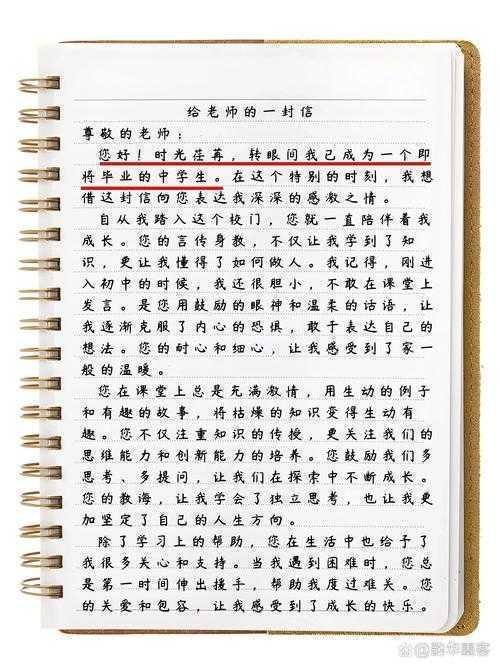 给老师的一封信
尊敬的老师：
您好！时光荏苒，转眼间我已成为一个即
将毕业的中学生。在这个特别的时刻，我想
借这封信向您表达我深深的感激之情。
自从我踏入这个校门，您就一直陪伴着我
成长。您的言传身教，不仅让我学到了知
识，更让我懂得了如何做人。我记得，刚进
入初中的时候，我还很胆小，不敢在课堂上
发言。是您用鼓励的眼神和温柔的话语，让
我逐渐克服了内心的恐惧，敢于表达自己的
想法。您的耐心和细心，让我感受到了家一
般的温暖。
您在课堂上总是充满激情，用生动的例子
和有趣的故事，将枯燥的知识变得生动有
趣。您不仅注重知识的传授，更关注我们的
思维能力和创新能力的培养。您鼓励我们多
思考、多提问，让我们在探索中不断成长。
您的教诲，让我学会了独立思考，也让我更
加坚定了自己的人生方向。
除了学习上的帮助，您在生活中也给予了
我很多关心和支持。当我遇到困难时，您总
是第一时间伸出援手，帮助我度过难关。您
的关爱和包容，让我感受到了成长的快乐。